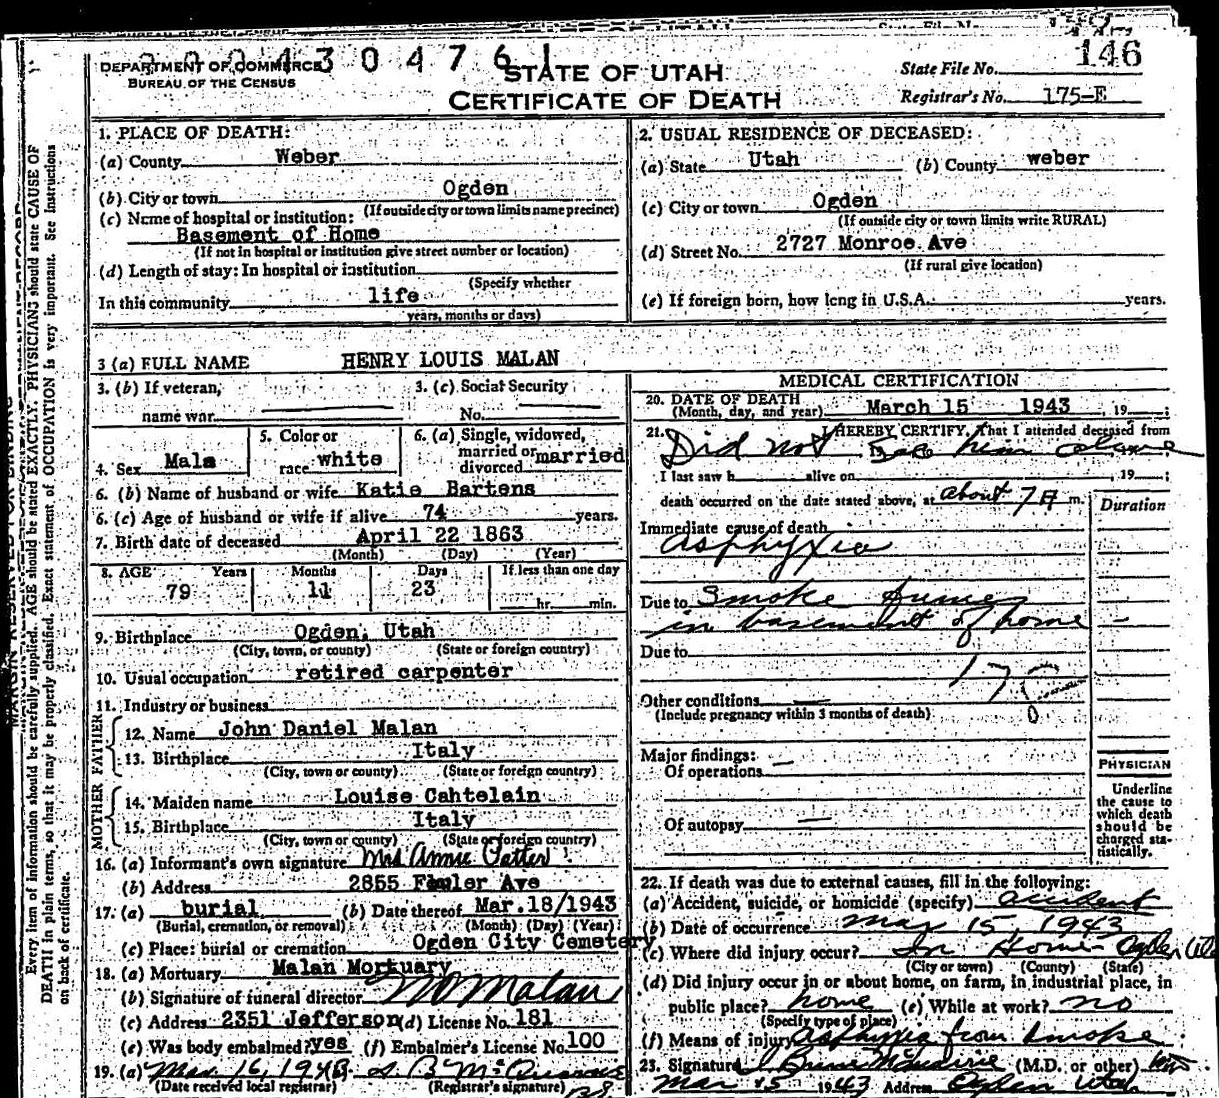 2 0 0 4 3 0 4 7 6 1
146
DEPARTMENT OF COMMERCE
BUREAU OF THE CENSUS
STATE OF UTAH
CERTIFICATE OF DEATH
State File No.
Registrar's No. 175-E
1. PLACE OF DEATH:
(a) County Weber
(b) City or town Ogden
(If outside city or town limits name precinct)
(c) Name of hospital or institution:
Basement of Home
(If not in hospital or institution give street number or location)
(d) Length of stay: In hospital or institution
(Specify whether
In this community life
years, months or days)
2. USUAL RESIDENCE OF DECEASED:
(a) State Utah (b) County weber
(c) City or town Ogden
(If outside city or town limits write RURAL)
(d) Street No. 2727 Monroe Ave
(If rural give location)
(e) If foreign born, how long in U.S.A. years.
3 (a) FULL NAME HENRY LOUIS MALAN
3. (b) If veteran,
name war
3. (c) Social Security
No.
4. Sex Male
5. Color or
race white
6. (a) Single, widowed,
married or
divorced married
6. (b) Name of husband or wife Katie Bartens
6. (c) Age of husband or wife if alive 74 years.
7. Birth date of deceased April 22 1863
(Month) (Day) (Year)
8. AGE Years Months Days If less than one day
79 11 23 hr. min.
9. Birthplace Ogden, Utah
(City, town, or county) (State or foreign country)
10. Usual occupation retired carpenter
11. Industry or business
FATHER
12. Name John Daniel Malan
13. Birthplace Italy
(City, town or county) (State or foreign country)
MOTHER
14. Maiden name Louise Cahtelain
15. Birthplace Italy
(City, town or county) (State or foreign country)
16. (a) Informant's own signature Mrs Annie
(b) Address 2855 Fowler Ave
17. (a) burial (b) Date thereof Mar.18/1943
(Burial, cremation, or removal) (Month) (Day) (Year)
(c) Place: burial or cremation Ogden City Cemetery
18. (a) Mortuary Malan Mortuary
(b) Signature of funeral director Malan
(c) Address 2351 Jefferson (d) License No. 181
(e) Was body embalmed? yes (f) Embalmer's License No. 100
19. (a) Mar. 16, 1943
(Date received local registrar) (Registrar's signature)
MEDICAL CERTIFICATION
20. DATE OF DEATH
(Month, day, and year) March 15 1943, 19 ;
21. I HEREBY CERTIFY, That I attended deceased from
Did not see him alive
I last saw h alive on , 19 ;
death occurred on the date stated above, at about 7 A m.
Duration
Immediate cause of death
asphyxia
Due to smoke fumes
in basement of home
Due to
178
Other conditions
(Include pregnancy within 3 months of death)
Major findings:
Of operations
Of autopsy
PHYSICIAN
Underline
the cause to
which death
should be
charged sta-
tistically.
22. If death was due to external causes, fill in the following:
(a) Accident, suicide, or homicide (specify) accident
(b) Date of occurrence Mar 15, 1943
(c) Where did injury occur? In Home Ogden
(City or town) (County) (State)
(d) Did injury occur in or about home, on farm, in industrial place, in
public place? home (e) While at work? no
(Specify type of place)
(f) Means of injury Asphyxia from smoke
23. Signature (M.D. or other)
Mar 15 1943 Address Ogden Utah
Every item of information should be carefully supplied. AGE should be stated EXACTLY. PHYSICIANS should state CAUSE OF
DEATH in plain terms, so that it may be properly classified. Exact statement of OCCUPATION is very important. See instructions
on back of certificate.